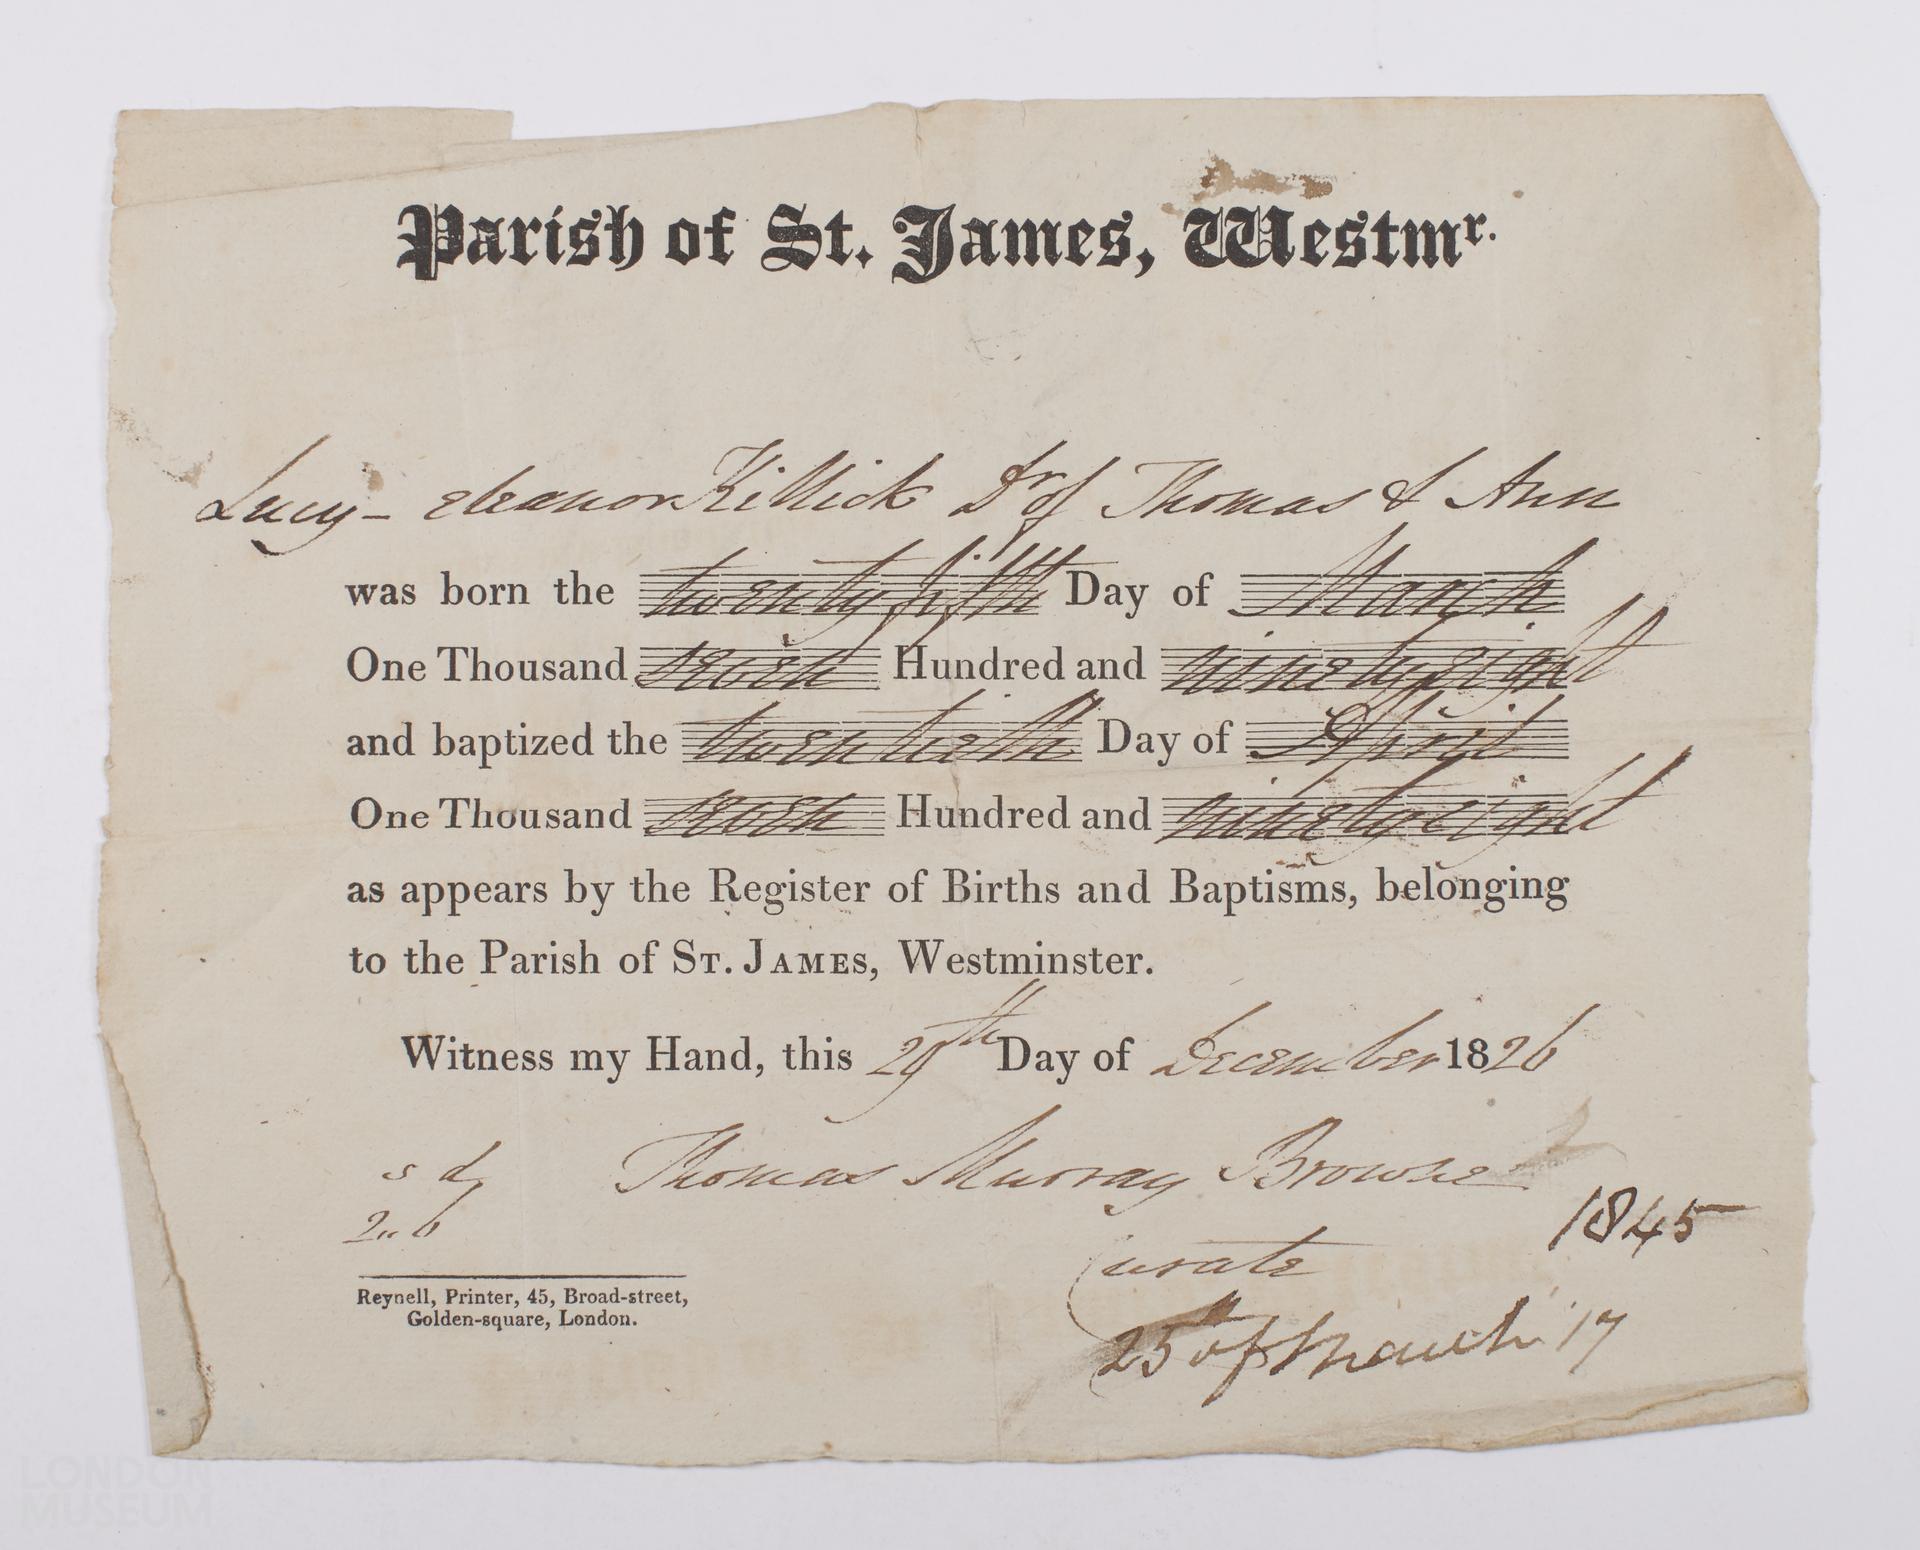 Parish of St. James, Westmr.
Lucy - Eleanor Killick Dr of Thomas & Ann
was born the twenty fifth Day of March
One Thousand seven Hundred and ninety eight
and baptized the twentieth Day of April
One Thousand seven Hundred and ninety eight
as appears by the Register of Births and Baptisms, belonging
to the Parish of St. James, Westminster.
Witness my Hand, this 29th Day of December 1826
s d Thomas Murray Browne
2..6
Curate
1845
25 of March 17
Reynell, Printer, 45, Broad-street,
Golden-square, London.
LONDON
MUSEUM